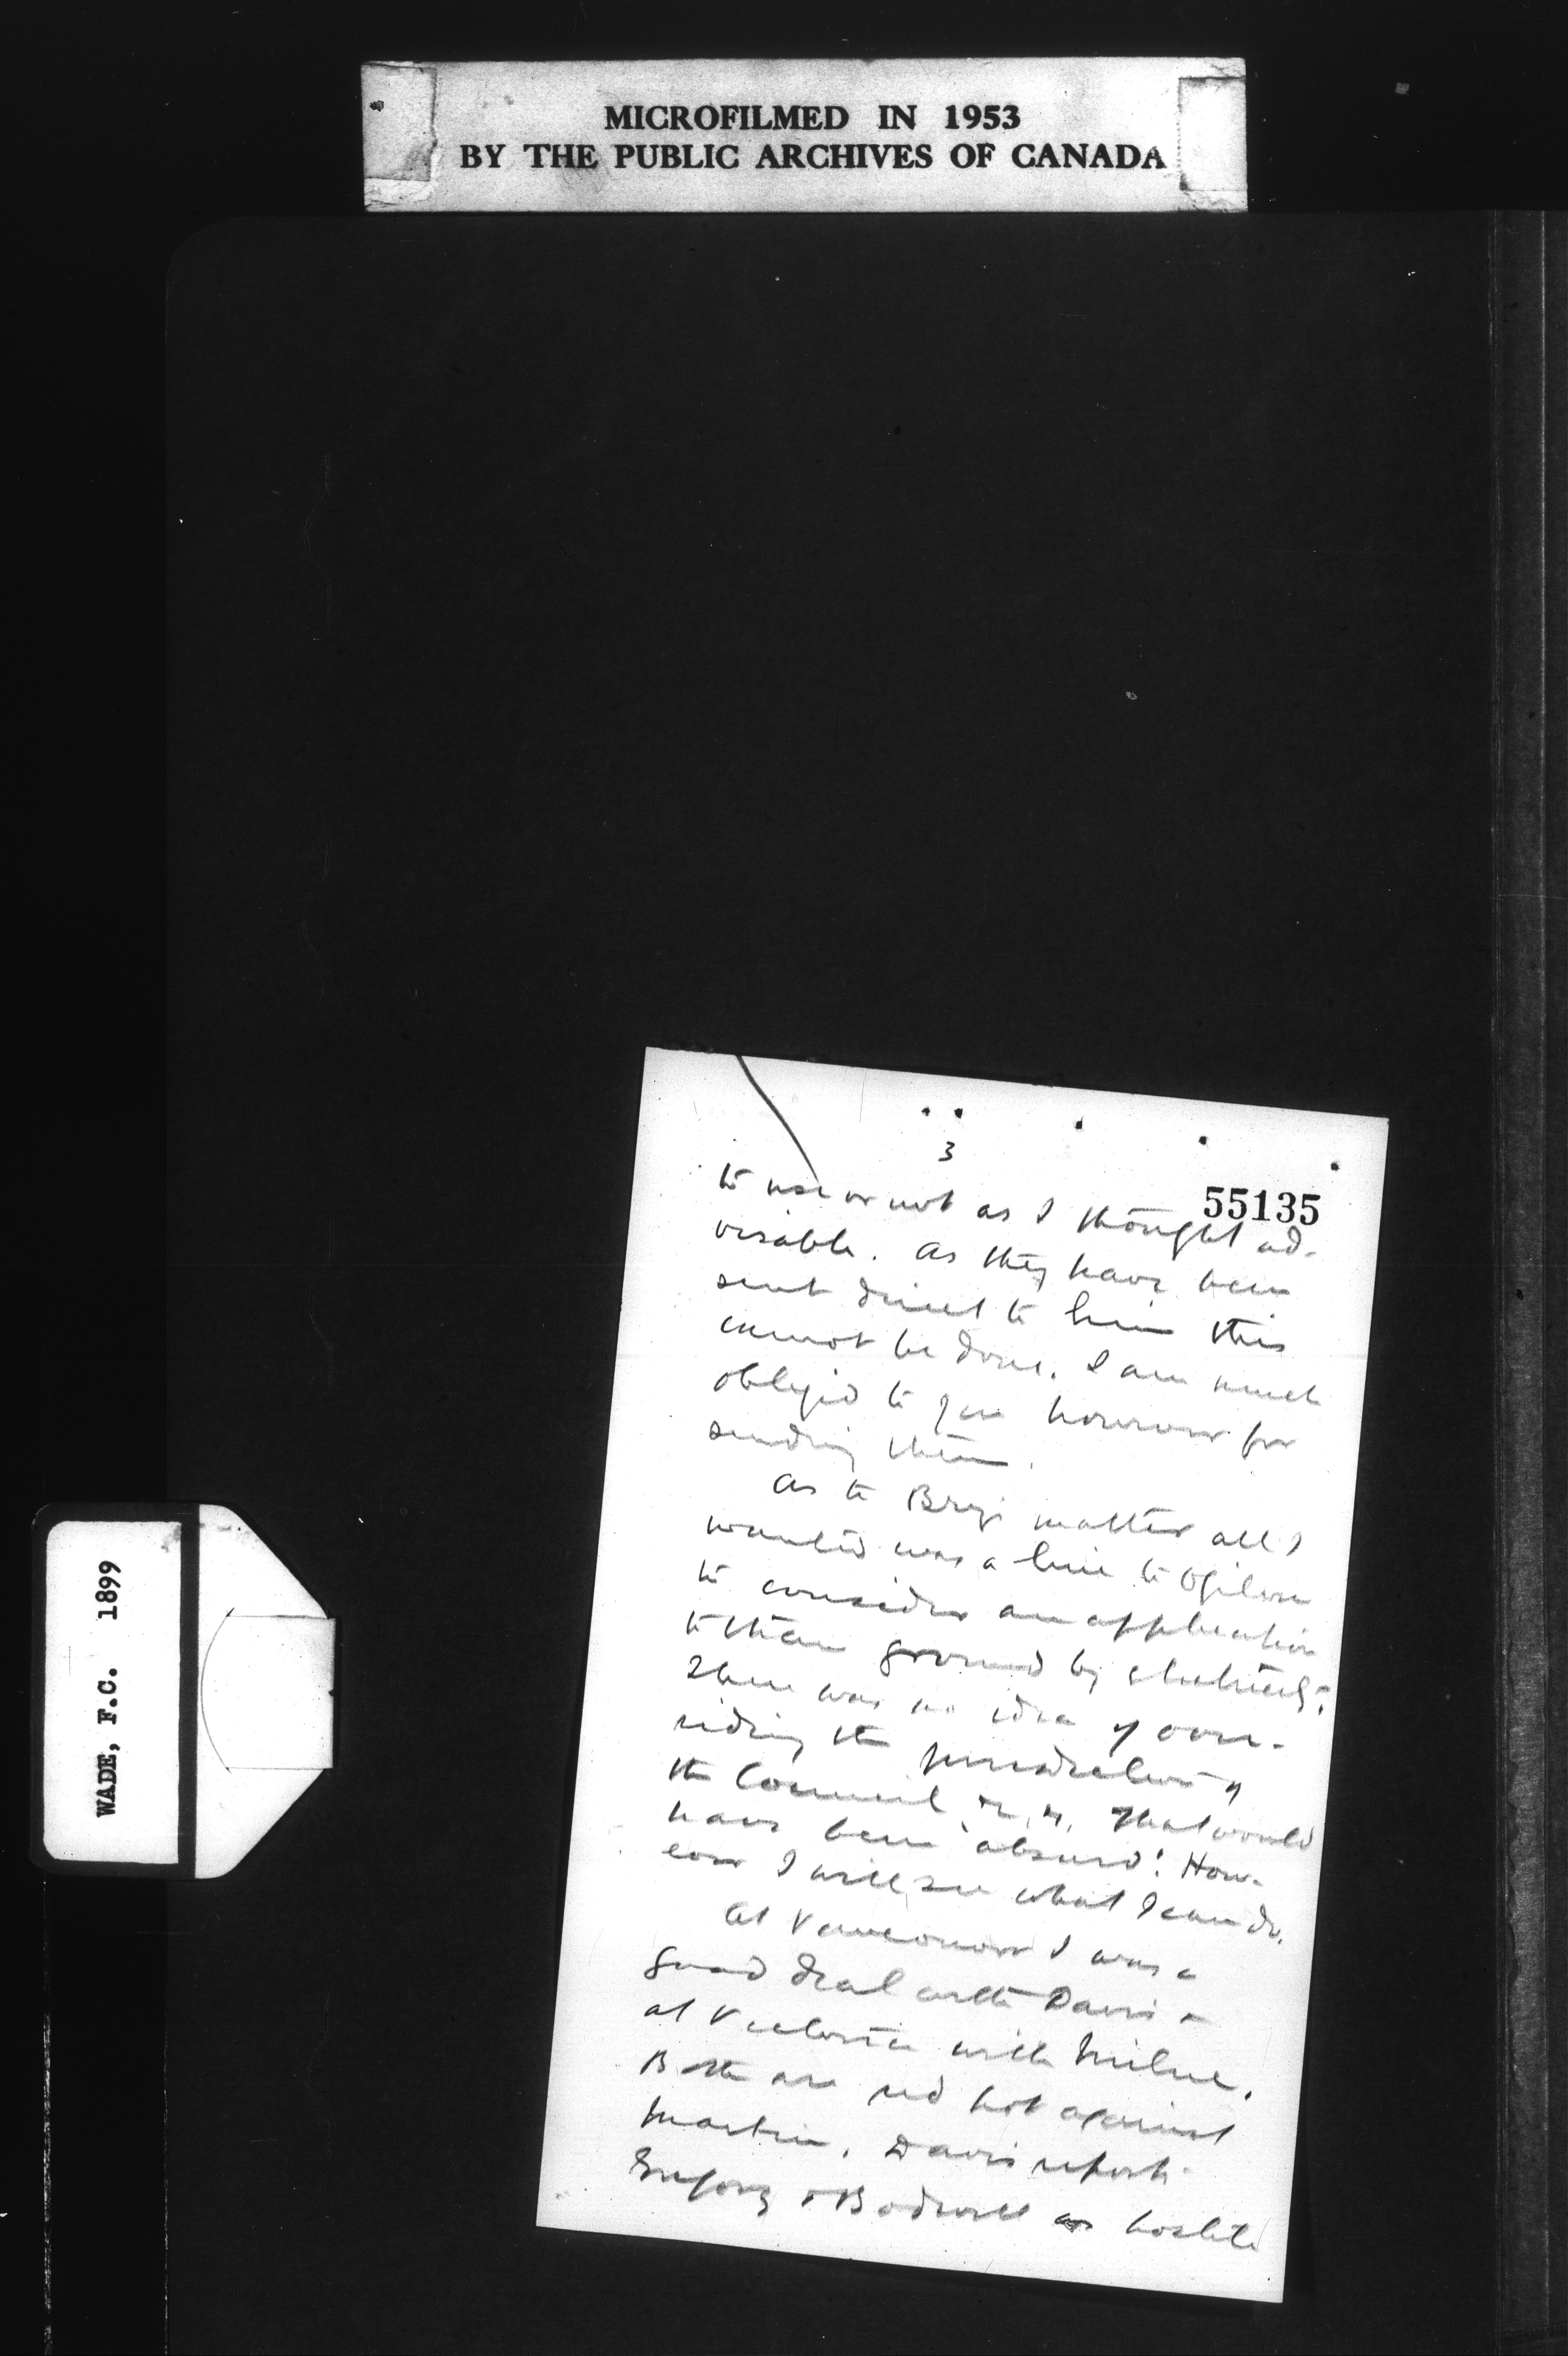 MICROFILMED IN 1953
BY THE PUBLIC ARCHIVES OF CANADA
WADE, F.C. 1899
3
55135
to use or not as I thought ad-
visable. As they have been
sent direct to him this
cannot be done. I am much
obliged to you however for
sending them.
As to matter all I
wanted was a line to Ogilvie
to consider an application
to thaw ground by electricity.
There was no idea of over-
riding the jurisdiction of
the Council. That would
have been absurd! How-
ever I will see what I can do.
At Vancouver I was a
good deal with Davis &
at Victoria with Milne.
Both are red hot against
Martin. Davis reports
Gregory & Bodwell as hostile